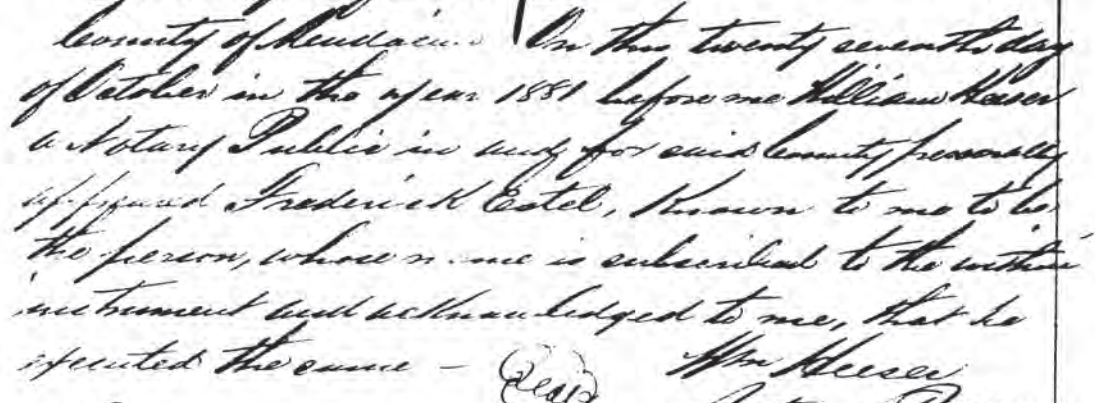 County of Mendocino On this twenty seventh day
of October in the year 1881 before me William Heeser
a Notary Public in and for said County personally
appeared Frederick Estel, Known to me to be
the person, whose name is subscribed to the within
instrument and acknowledged to me, that he
executed the same – (Seal) Wm Heeser